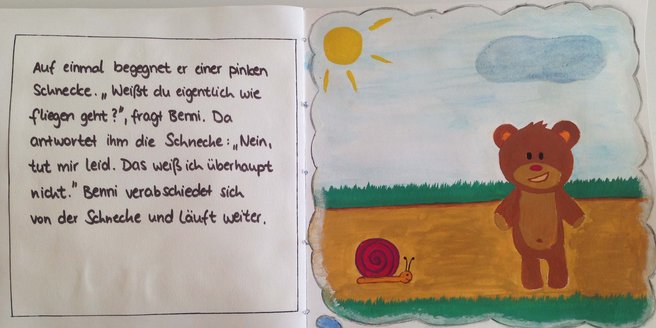 Auf einmal begegnet er einer pinken
Schnecke. „Weißt du eigentlich wie
fliegen geht?", fragt Benni. Da
antwortet ihm die Schnecke: „Nein,
tut mir leid. Das weiß ich überhaupt
nicht." Benni verabschiedet sich
von der Schnecke und läuft weiter.